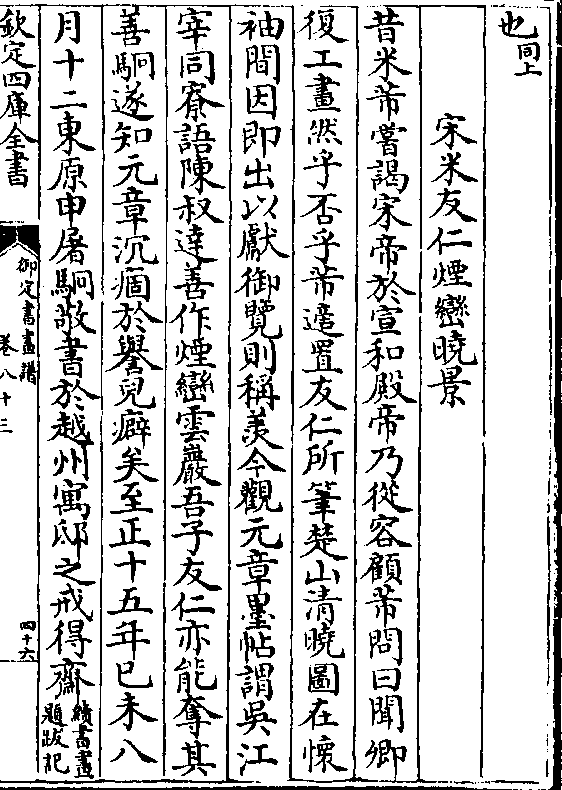 也同上
宋米友仁煙巒曉景
昔米芾嘗謁宋帝於宣和殿帝乃從容顧芾問曰聞卿
復工畫然乎否乎芾適置友仁所筆楚山清曉圖在懷
袖間因即出以獻御覽則稱羨今觀元章墨帖謂吳江
宰同寮語陳叔達善作煙巒雲巖吾子友仁亦能奪其
善駉遂知元章沉痼於譽兒癖矣至正十五年已未八
月十二東原申屠駉敬書於越州寓邸之戒得齋續書畫
題跋記
欽定四庫全書
御定書畫譜
卷八十三
四十六